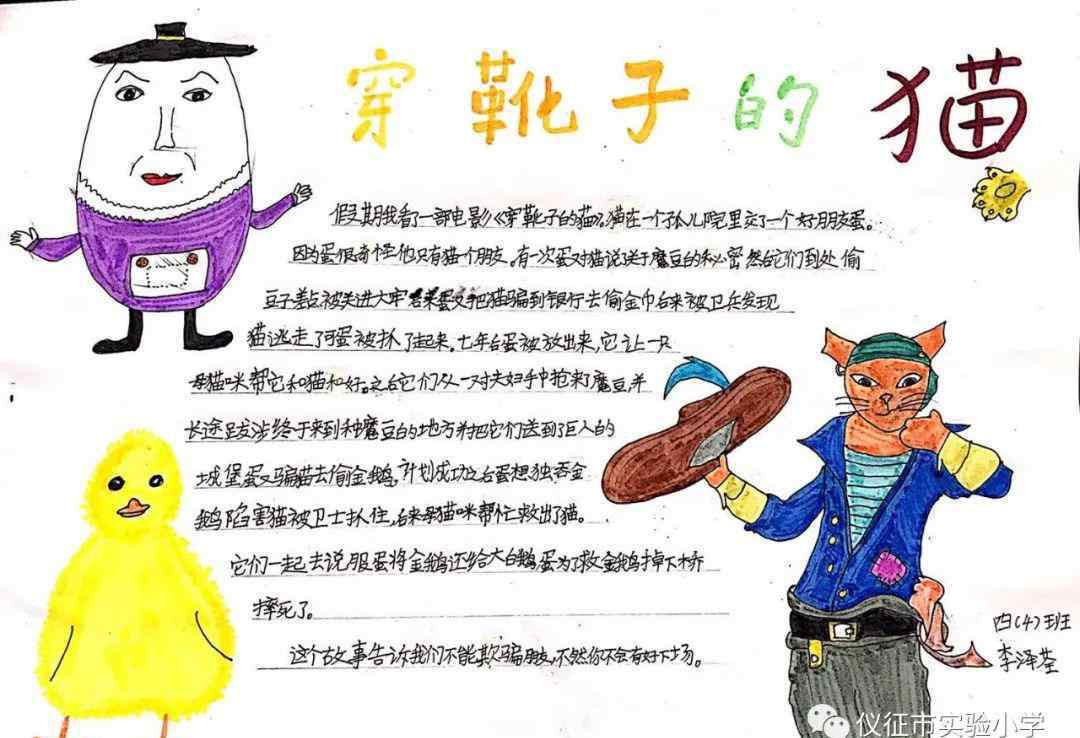 穿靴子的猫
假期我看了一部电影《穿靴子的猫》。猫在一个孤儿院里交了一个好朋友蛋。
因为蛋很奇怪他只有猫个朋友。有一次蛋对猫说关于魔豆的秘密然后它们到处偷
豆子差点被关进大牢 后来蛋又把猫骗到银行去偷金币后来被卫兵发现
猫逃走了可蛋被抓了起来。七年后蛋被放出来,它让一只
母猫咪帮它和猫和好。之后它们从一对夫妇手中抢来了魔豆,并
长途跋涉终于来到种魔豆的地方并把它们送到了巨人的
城堡蛋又骗猫去偷金鹅。计划成功之后蛋想独吞金
鹅陷害猫被卫士抓住,后来母猫咪帮忙救出了猫。
它们一起去说服蛋将金鹅还给大白鹅,蛋为了救金鹅掉下桥
摔死了。
这个故事告诉我们不能欺骗朋友,不然你不会有好下场。
四(4)班
李泽荃
仪征市实验小学